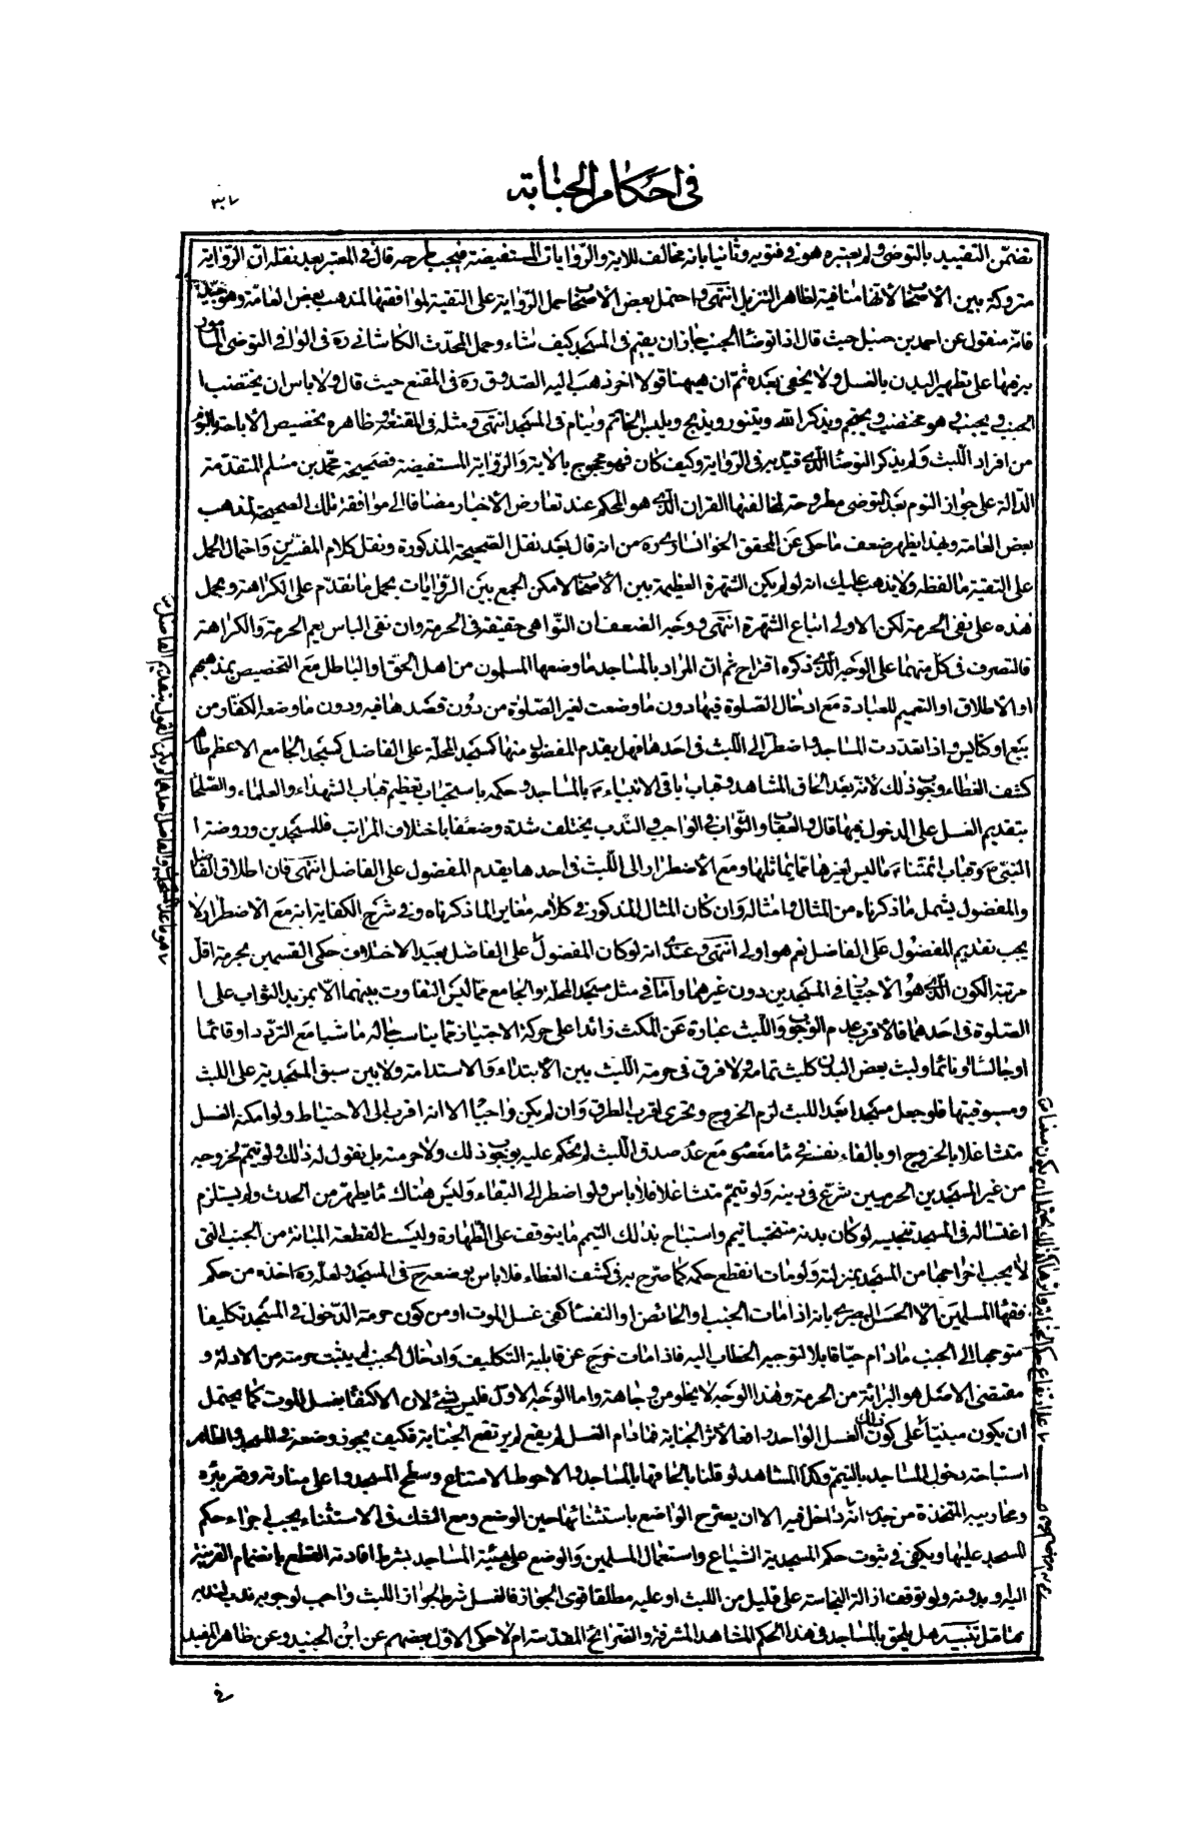 في احكام الجنابة
تضمن التقييد بالتوضى ولم يعتبره هو في فتويه وثانيا بانه مخالف للاية والروايات المستفيضة فيجب طرحه قال في المعتبر بعد نقله ان الرواية
متروكة بين الاصحاب لانها منافية لظاهر التنزيل انتهى واحتمل بعض الاصحاب حمل الرواية على التقية لموافقتها لمذهب بعض العامة وهو جيد
فانه منقول عن احمد بن حنبل حيث قال اذا توضا الجنب جاز ان يقيم في المسجد كيف شاء وحمل المحدث الكاشاني ره في الوافي التوضى المامور
به فيها على تطهير البدن بالغسل ولا يخفى بعده ثم ان هيهنا قولا اخر ذهب اليه الصدوق ره في المقنع حيث قال ولا باس ان يختضب ا
لجنب ويجنب وهو مختضب ويحتجم ويذكر الله ويتنور ويذبح ويلبس الخاتم وينام في المسجد انتهى ومثله في المقنعة وظاهره تخصيص الاباحة بالنوم
من افراد اللبث ولم يذكر التوضا الذي قيد به في الرواية وكيف كان فهو محجوج بالاية والرواية المستفيضة وصحيحة محمد بن مسلم المتقدمة
الدالة على جواز النوم بعد التوضى مطروحة لمخالفتها القران الذي هو المحكم عند تعارض الاخبار مضافا الى موافقة تلك الصحيحة لمذهب
بعض العامة وبهذا يظهر ضعف ما حكى عن المحقق الخوانساري ره من انه قال بعد نقل الصحيحة المذكورة ونقل كلام المفسرين واحتمال الحمل
على التقية ما لفظه ولا يذهب عليك انه لو لم يكن الشهرة العظيمة بين الاصحاب لامكن الجمع بين الروايات بحمل ما تقدم على الكراهة وبحمل
هذه على نفى الحرمة لكن الاولى اتباع الشهرة انتهى ووجه الضعف ان النواهي حقيقة في الحرمة وان نفى الباس يعم الحرمة والكراهة
فالتصرف في كل منهما على الوجه الذي ذكره اقتراح ثم ان المراد بالمساجد ما وضعها المسلمون من اهل الحق او الباطل مع التخصيص بمذهبهم
او الاطلاق او التعميم للعبادة مع ادخال الصلوة فيها دون ما وضعت لغير الصلوة من دون قصدها فيه ودون ما وضعه الكفار من
بيع او كنايس واذا تعددت المساجد واضطر الى اللبث في احدها فهل يقدم المفضول منها كمسجد المحلة على الفاضل كمسجد الجامع الاعظم ظاهر
كشف الغطاء وجوب ذلك لانه بعد الحاق المشاهد وقباب باقي الانبياء بالمساجد وحكمه باستحباب تعظيم قباب الشهداء والعلماء والصلحاء
بتقديم الغسل على الدخول فيها قال والعقاب والثواب في الواجب والندب يختلف شدة وضعفا باختلاف المراتب فللمسجدين وروضة ا
لنبي وقباب ائمتنا ما ليس لغيرها مما يماثلها ومع الاضطرار الى اللبث في احدها يقدم المفضول على الفاضل انتهى فان اطلاق الفاضل
والمفضول يشمل ما ذكرناه من المثال وامثاله وان كان المثال المذكور في كلامه مغايرا لما ذكرناه وفي شرح الكفاية انه مع الاضطرار لا
يجب تقديم المفضول على الفاضل نعم هو اولى انتهى وعندي انه لو كان المفضول على الفاضل بعيد الاختلاف حكمي القسمين بحرمة اقل
مرتبة الكون الذي هو الاجتياز في المسجدين دون غيرهما واما في مثل مسجد المحلة والجامع مما ليس التفاوت بينهما الا بمزيد الثواب على ا
لصلوة في احدهما فالاقرب عدم الوجوب واللبث عبارة عن المكث زائدا على حركة الاجتياز مما يناسب حاله ماشيا مع التردد او قائما
او جالسا او نائما ولبث بعض البدن كلبث تمامه ولا فرق في حرمة اللبث بين الابتداء والاستدامة ولا بين سبق المسجدية على اللبث
ومسبوقيتها فلو جعل مسجدا بعد اللبث لزم الخروج وتحرى اقرب الطرق وان لم يكن واجبا الا انه اقرب الى الاحتياط ولو امكنه الغسل
متشاغلا بالخروج او بالقاء نفسه في ماء معصوم مع عدم صدق اللبث لم يحكم عليه بوجوب ذلك ولا حرمته بل نقول له ذلك ولو تيمم لخروجه
من غير المسجدين الحرميين شرع في دينه ولو تيمم متشاغلا فلا باس ولو اضطر الى البقاء وليس هناك ما يطهره من الحدث ولم يستلزم
اغتساله في المسجد تنجيسه لو كان بدنه متنجسا تيمم واستباح بذلك التيمم ما يتوقف على الطهارة وليست القطعة المبانة من الجنب التي
لا يجب اخراجها من المسجد بمنزلته ولو مات انقطع حكمه كما صرح به في كشف الغطاء فلا باس بوضعه ح في المسجد ولعله ره اخذه من حكم
فقهاء المسلمين الا الحسن البصري بانه اذا مات الجنب او الحائض او النفساء كفى غسل الموت او من كون حرمة الدخول في المسجد تكليفا
متوجها الى الجنب ما دام حيا قابلا لتوجيه الخطاب اليه فاذا مات خرج عن قابلية التكليف وادخال الجنب لم يثبت حرمته من الادلة و
مقتضى الاصل هو البرائة من الحرمة وهذا الوجه لا يخلو من وجاهة واما الوجه الاول فليس بشئ لان الاكتفاء بغسل الموت كما يحتمل
ان يكون مبنيا على كون ذلك الغسل الواحد رافعا لاثر الجنابة فما دام الغسل لم يقع لم يرتفع الجنابة فكيف يجوز وضعه في المسجد والظاهر
استباحة دخول المساجد بالتيمم وكذا المشاهد لو قلنا بالحاقها بالمساجد والاحوط الامتناع وسطح المسجد واعلى منارته ومقر بئره
ومحاريبه المتخذة من جدرانه داخل فيه الا ان يصرح الواضع باستثنائها حين الوضع ومع الشك في الاستثناء يجب اجراء حكم
المسجد عليها ويكفي في ثبوت حكم المسجدية الشياع واستعمال المسلمين والوضع على هيئة المساجد بشرط افادته القطع بانضمام القرينة
اليه وبدونه ولو توقفت ازالة النجاسة على قليل من اللبث او عليه مطلقا قوى الجواز فالغسل شرط لجواز اللبث وواجب لوجوبه
فتامل تنبيه هل يلحق بالمساجد في هذا الحكم المشاهد المشرفة والضرائح المقدسة ام لا حكى الاول بعضهم عن ابن الجنيد وعن ظاهر المفيد